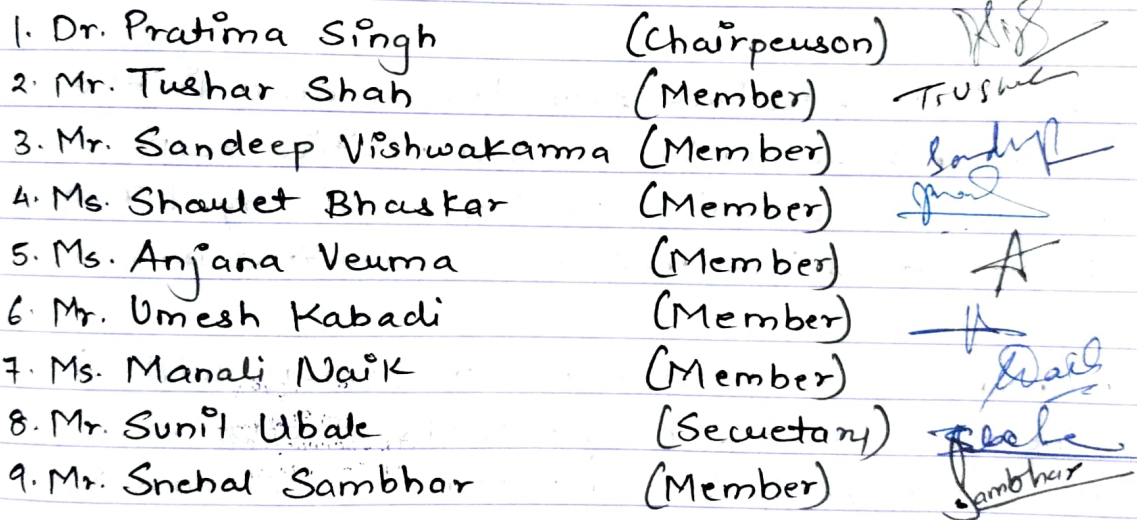 1. Dr. Pratima Singh (Chairperson)
2. Mr. Tushar Shah (Member) Trushal
3. Mr. Sandeep Vishwakarma (Member) Sandeep
4. Ms. Sharlet Bhaskar (Member)
5. Ms. Anjana Verma (Member) A
6. Mr. Umesh Kabadi (Member)
7. Ms. Manali Naik (Member) Naik
8. Mr. Sunil Ubale (Secretary)
9. Mr. Snehal Sambhar (Member) Sambhar